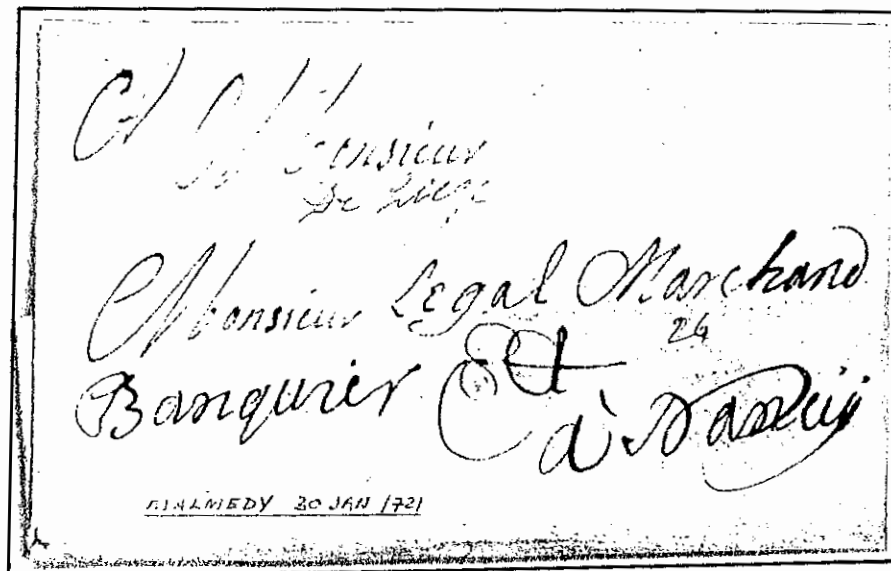 A Monsieur
De Liege
Monsieur Legal Marchand
24
Banquier Et
à Nancÿ
MALMEDY 30 JAN 1721